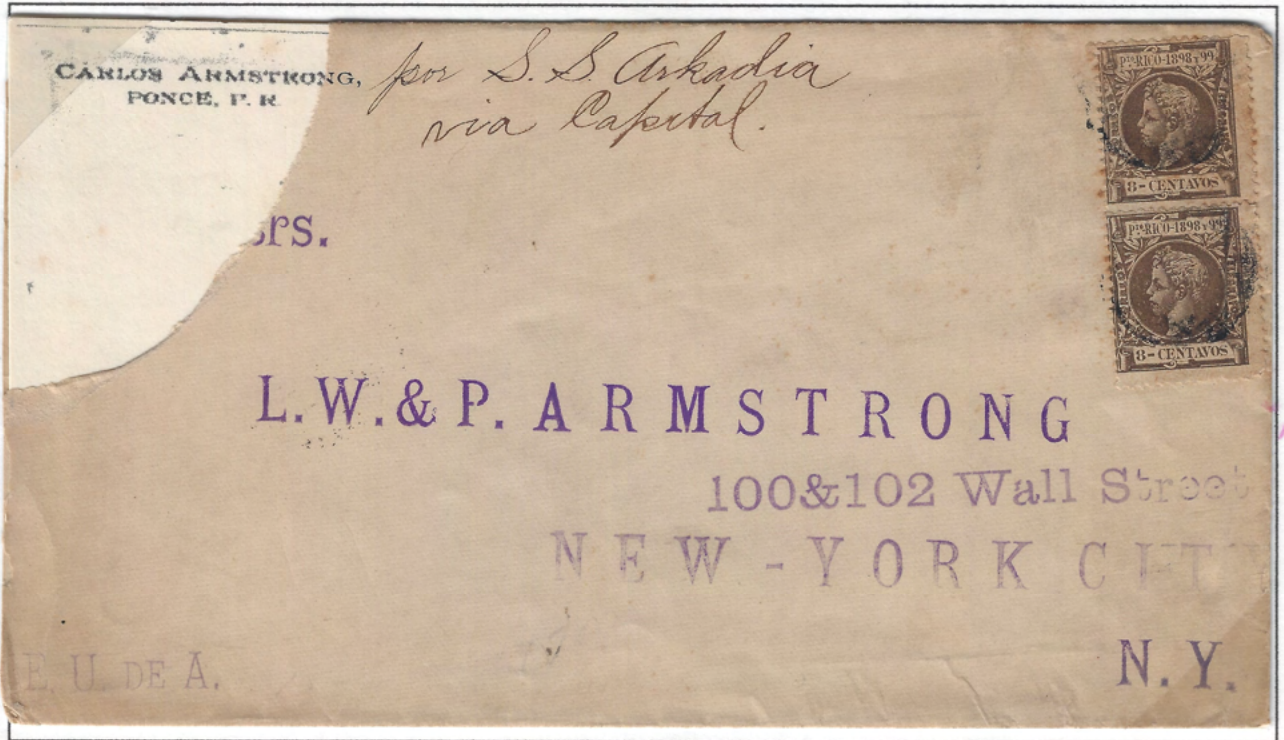 CARLOS ARMSTRONG,
PONCE, P. R.
por S. S. Arkadia
via Capital.
PTO RICO-1898 Y 99
8-CENTAVOS
PTO RICO-1898 Y 99
8-CENTAVOS
srs.
L.W.&P. ARMSTRONG
100&102 Wall Street
NEW-YORK CITY
N.Y.
E. U. DE A.